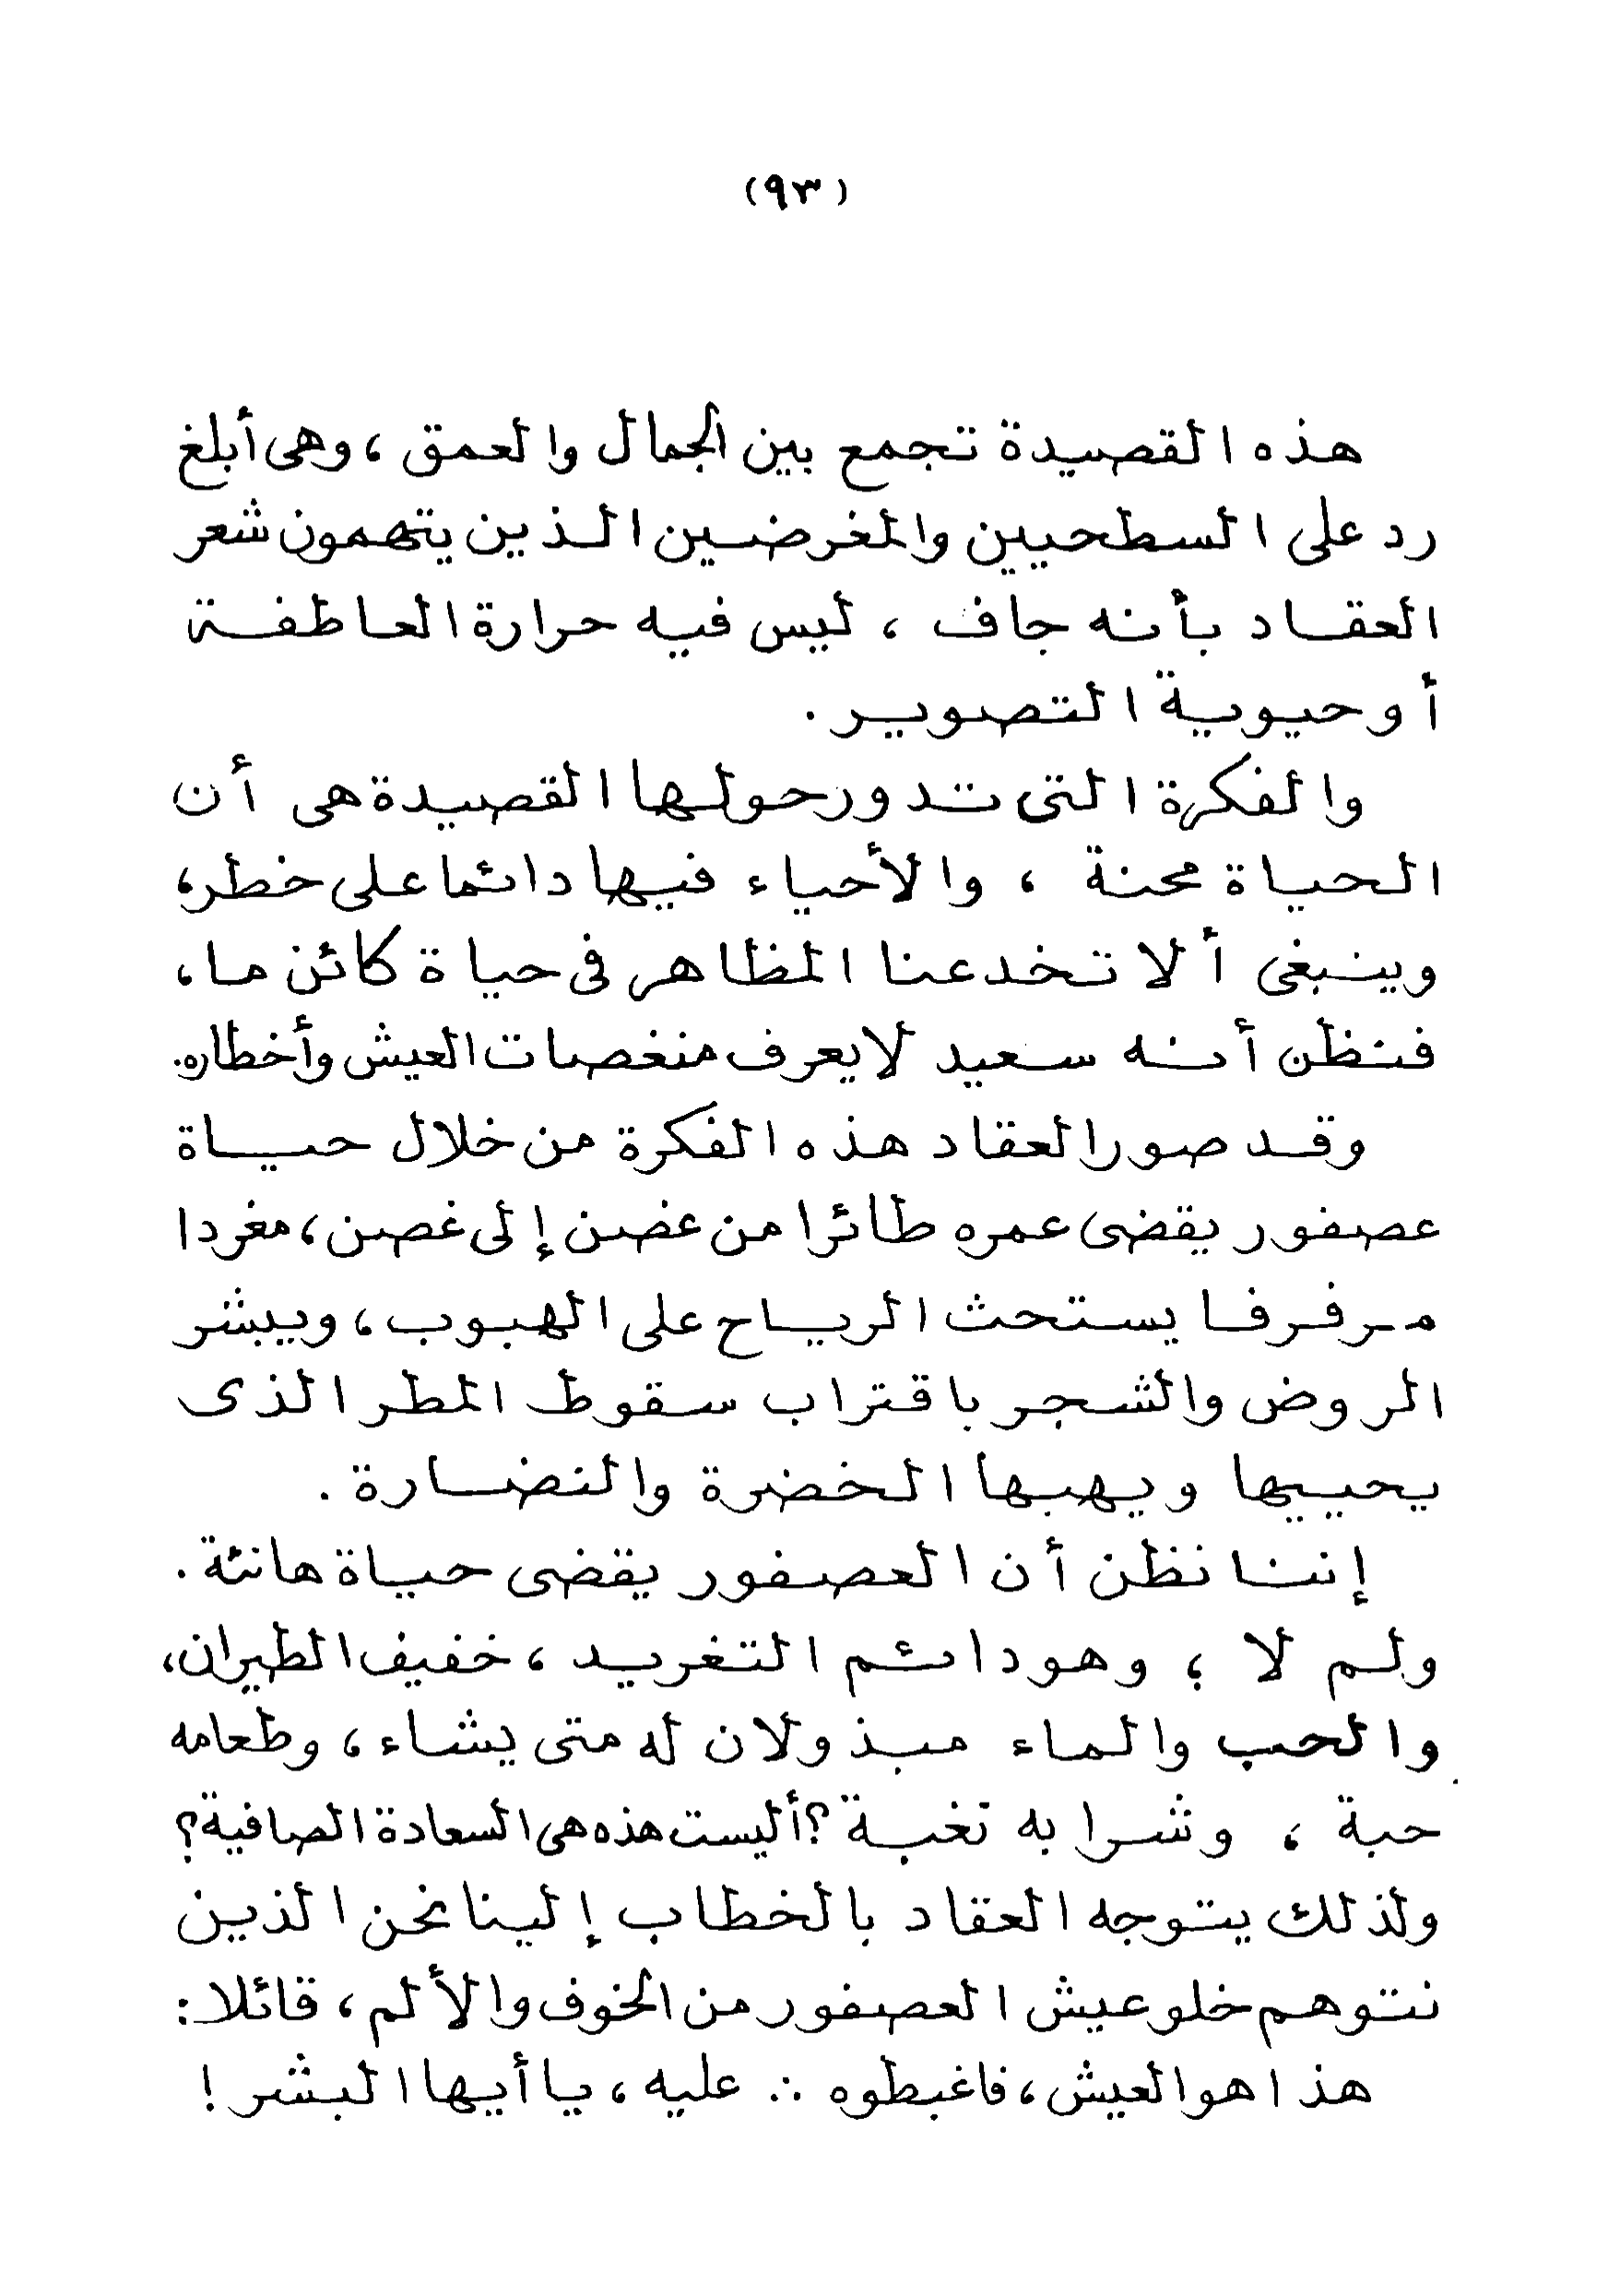 (٩٣)
هذه القصيدة تجمع بين الجمال والعمق ، وهى أبلغ
رد على السطحيين والمغرضين الذين يتهمون شعر
العقاد بأنه جاف ، ليس فيه حرارة العاطفة
أو حيوية التصوير .
والفكرة التى تدور حولها القصيدة هى أن
الحياة محنة ، والأحياء فيها دائما على خطر،
وينبغى ألا تخدعنا المظاهر فى حياة كائن ما ،
فنظن أنه سعيد لا يعرف منغصات العيش وأخطاره.
وقد صور العقاد هذه الفكرة من خلال حياة
عصفور يقضى عمره طائرا من غضن إلى غصن ، مغردا
مرفرفا يستحث الرياح على الهبوب ، ويبشر
الروض والشجر باقتراب سقوط المطر الذى
يحييها ويهبها الخضرة والنضارة .
إننا نظن أن العصفور يقضى حياة هانئة .
ولم لا ؛ وهو دائم التغريد ، خفيف الطيران،
والحب والماء مبذولان له متى يشاء ، وطعامه
حبة ، وشرابه نغبة ؟ أليست هذه هى السعادة الصافية؟
ولذلك يتوجه العقاد بالخطاب إلينا نحن الذين
نتوهم خلو عيش العصفور من الخوف والألم ، قائلا :
هذا هو العيش ، فاغبطوه ∴ عليه ، يا أيها البشر !